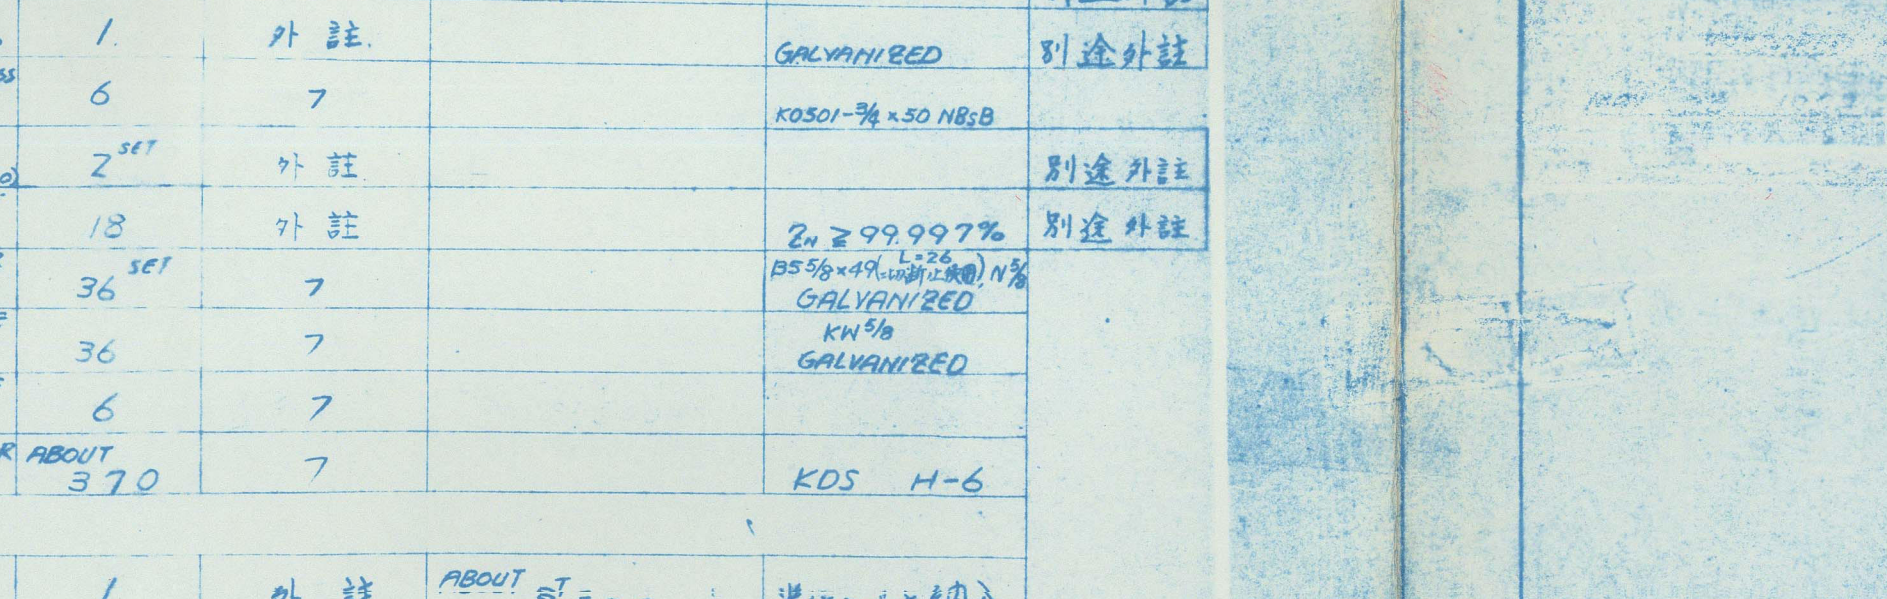 1. 外註. GALVANIZED 別途外註
6 〃 K0501-3/4×50 NBsB
2 SET 外註 別途外註
18 外註 Zn ≧ 99.997% 別途外註
36 SET 〃 BS 5/8×49(L=26 ニ切断止使用), N 5/8
GALVANIZED
36 〃 KW 5/8
GALVANIZED
6 〃
ABOUT
370 〃 KDS H-6
1 外註 ABOUT